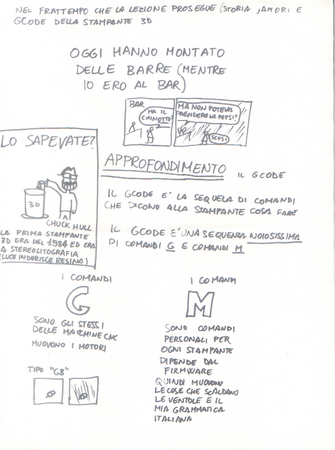 NEL FRATTEMPO CHE LA LEZIONE PROSEGUE (STORIA, AMORI E
GCODE DELLA STAMPANTE 3D
OGGI HANNO MONTATO
DELLE BARRE (MENTRE
IO ERO AL BAR)
BAR
HA IL
CHINOTTO?
MA NON POTEVA
PRENDERE LA PEPSI?
LO SAPEVATE?
3D
CHUCK HULL
LA PRIMA STAMPANTE
3D ERA DEL 1984 ED ERA
A STEREOLITOGRAFIA
(LUCE INDURISCE RESINA)
APPROFONDIMENTO IL GCODE
IL GCODE E' LA SEQUELA DI COMANDI
CHE DICONO ALLA STAMPANTE COSA FARE
IL GCODE E' UNA SEQUENZA NOIOSISSIMA
DI COMANDI G E COMANDI M
I COMANDI
G
SONO GLI STESSI
DELLE MACCHINE CNC
MUOVONO I MOTORI
TIPO "G8"
I COMANDI
M
SONO COMANDI
PERSONALI PER
OGNI STAMPANTE
DIPENDE DAL
FIRMWARE
QUINDI MUOVONO
LE COSE CHE SCALDANO
LE VENTOLE E IL
MIA GRAMMATICA
ITALIANA